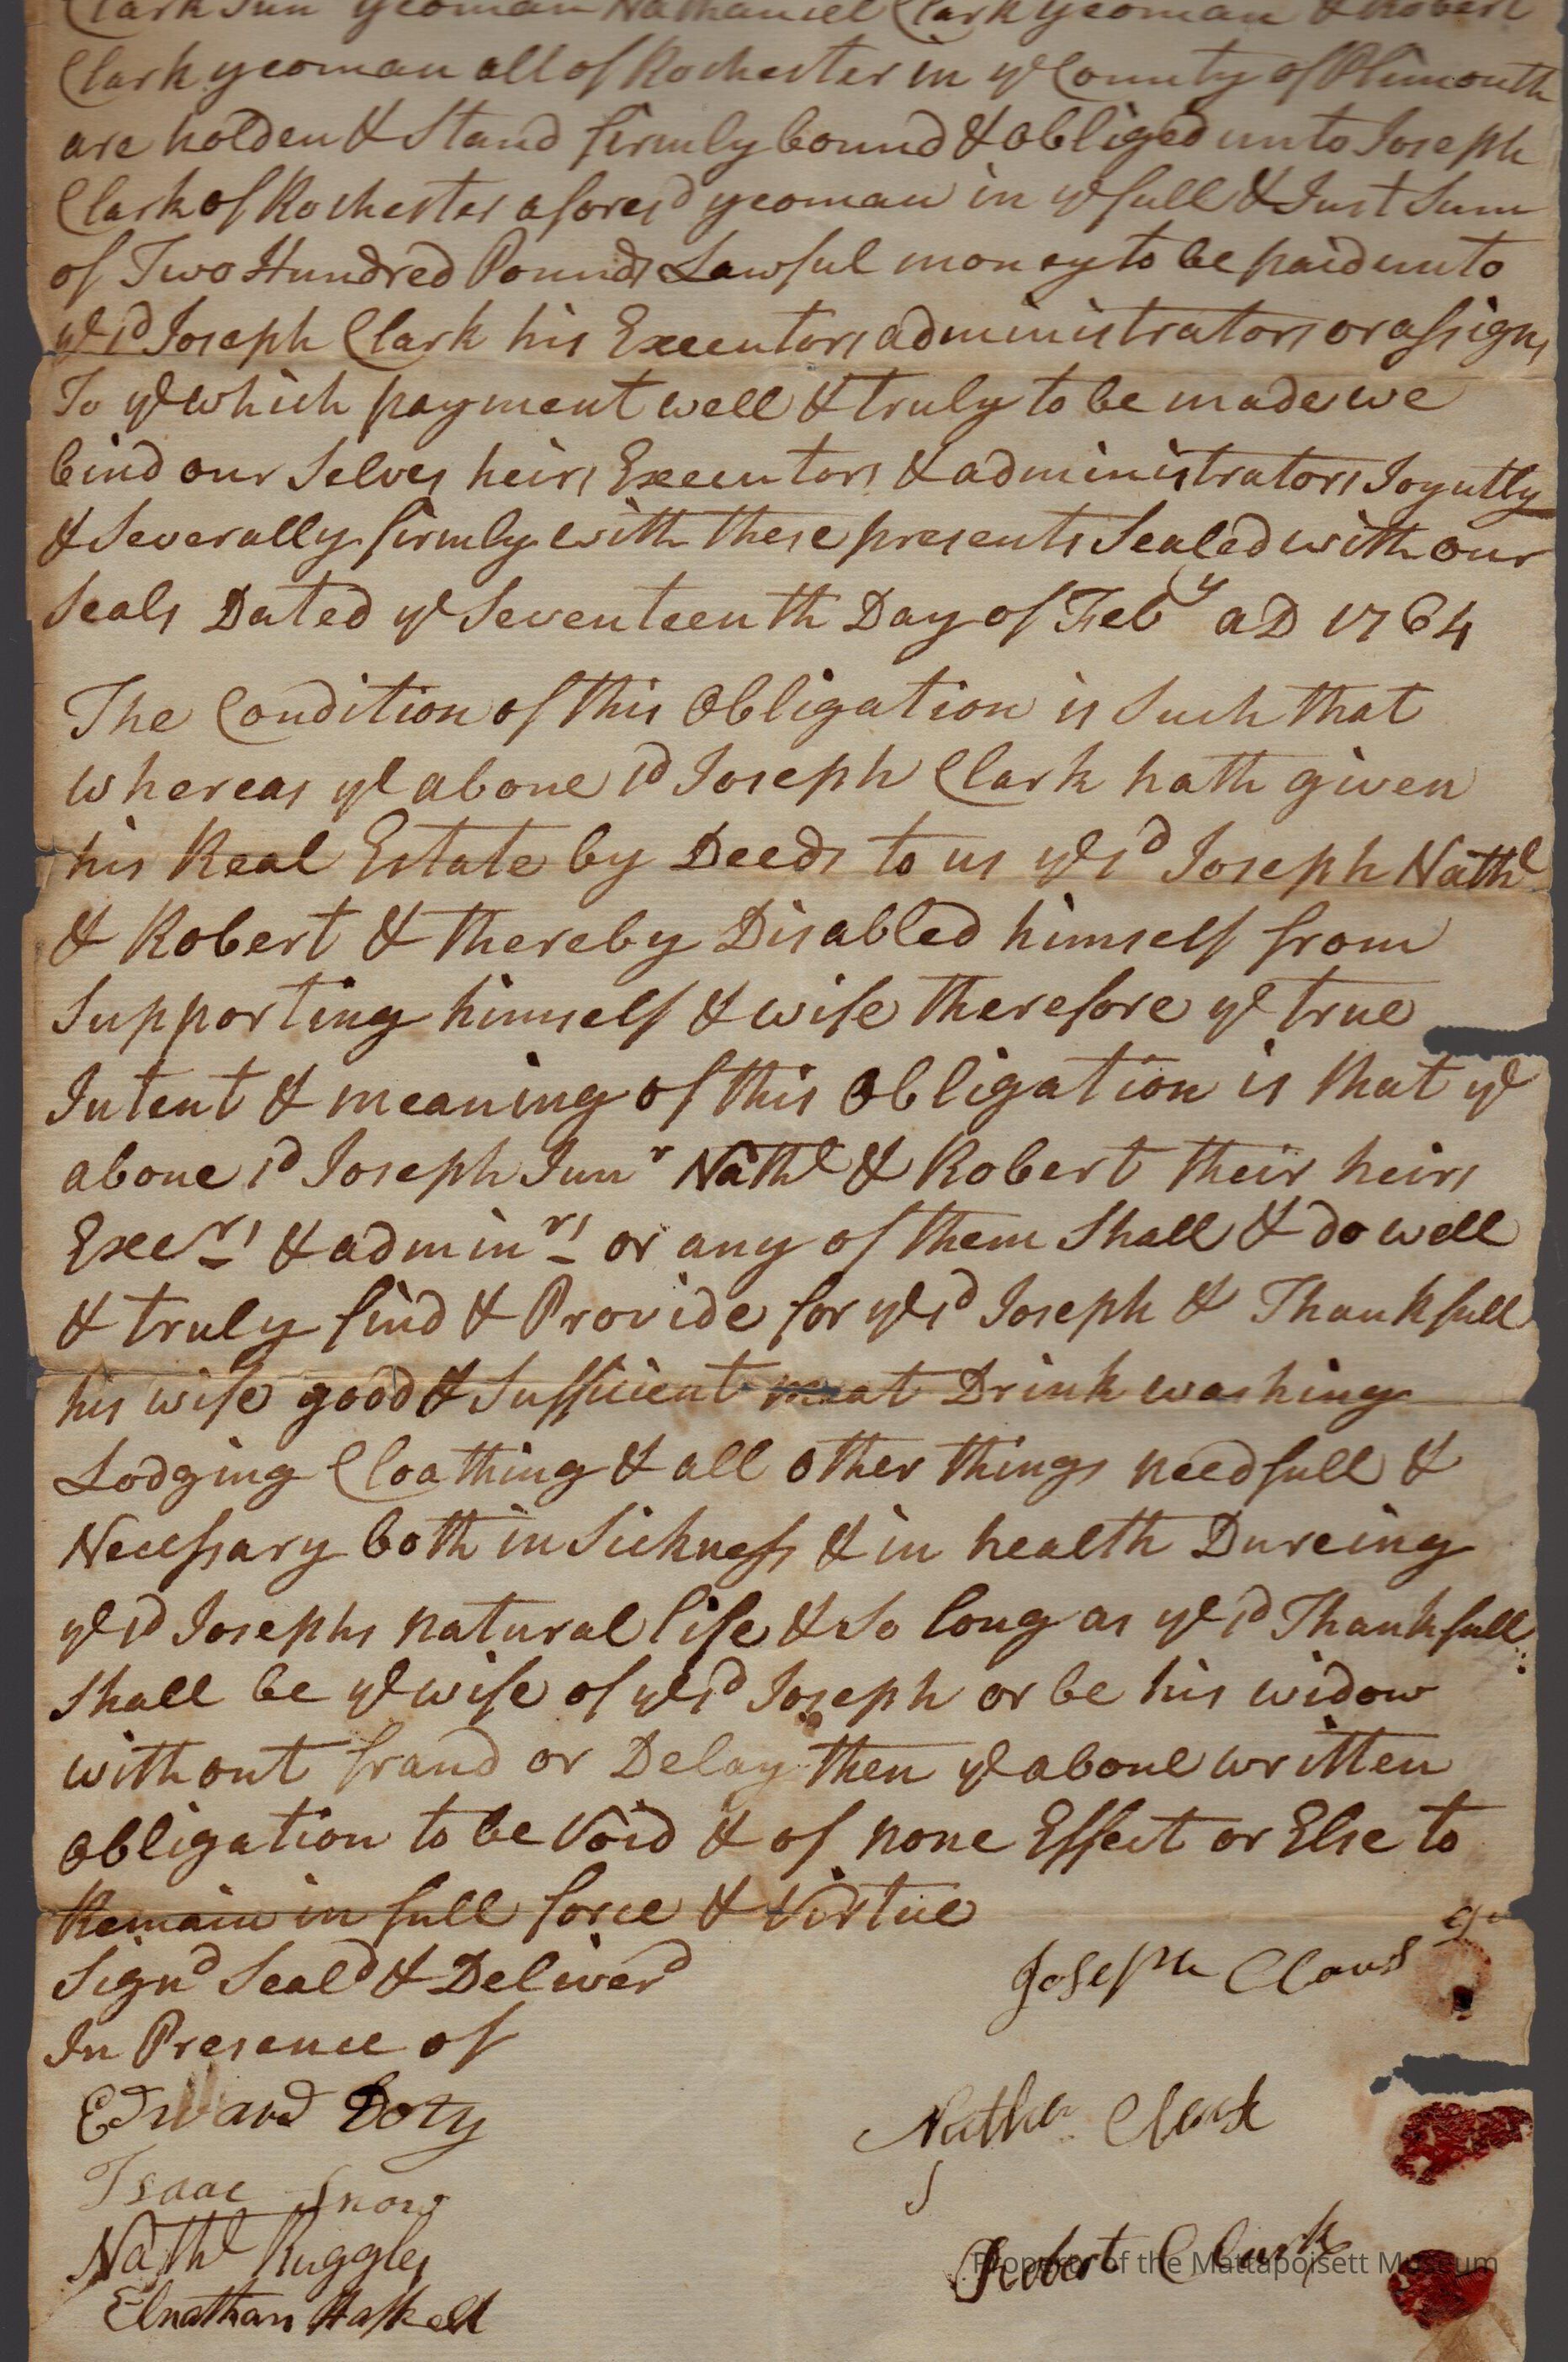 Clark Jun yeoman Nathaniel Clark yeoman & Robert
Clark yeoman all of Rochester in ye County of Plimouth
are holden & Stand firmly bound & obliged unto Joseph
Clark of Rochester aforesd yeoman in ye full & Just Sum
of Two Hundred Pounds Lawful money to be paid unto
ye sd Joseph Clark his Executors administrators or assigns
To ye which payment well & truly to be made we
bind our Selves heirs Executors & administrators Joyntly
& Severally firmly with these presents Sealed with our
Seals Dated ye Seventeenth Day of Feby aD 1764
The Condition of this Obligation is Such that
whereas ye above sd Joseph Clark hath given
his Real Estate by Deeds to us ye sd Joseph Nathl
& Robert & thereby Disabled himself from
Supporting himself & wife therefore ye true
Intent & meaning of this Obligation is that ye
above sd Joseph Junr Nathl & Robert their heirs
Execrs & adminrs or any of them Shall & do well
& truly find & Provide for ye sd Joseph & Thankfull
his wife good & Sufficient meat Drink washing
Lodging Cloathing & all other things needfull &
Necessary both in Sickness & in health Dureing
ye sd Josephs natural life & So long as ye sd Thankfull
Shall be ye wife of ye sd Joseph or be his widow
without fraud or Delay then ye above written
obligation to be Void & of none Effect or Else to
Remain in full force & Virtue
Signd Seald & Deliverd
In Presence of
Joseph Clark
Edward Doty
Nathan Clark
Isaac Snow
Nathl Ruggles
Robert Clark
Elnathan Haskell
Property of the Mattapoisett Museum